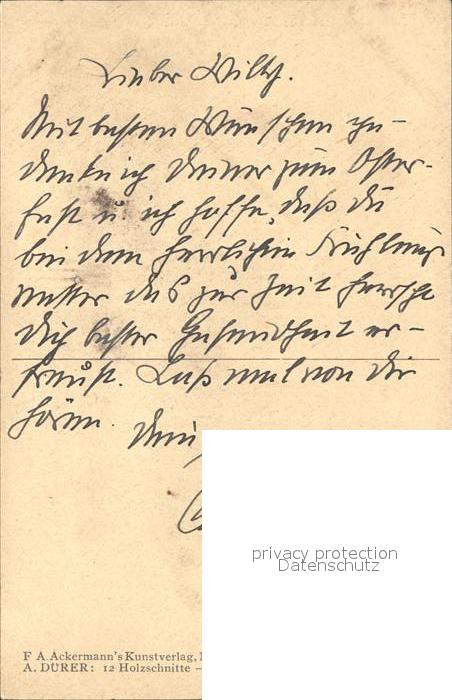 Lieber Willy.
Mit besten Wünschen ge-
denke ich Deiner zum Oster-
fest u. ich hoffe, daß du
bei dem herrlichen Frühlings
wetter das zur Zeit herrscht
Dich bester Gesundheit er-
freust. Laß mal von dir
hören.
privacy protection
Datenschutz
F. A. Ackermann's Kunstverlag,
A. DÜRER: 12 Holzschnitte –